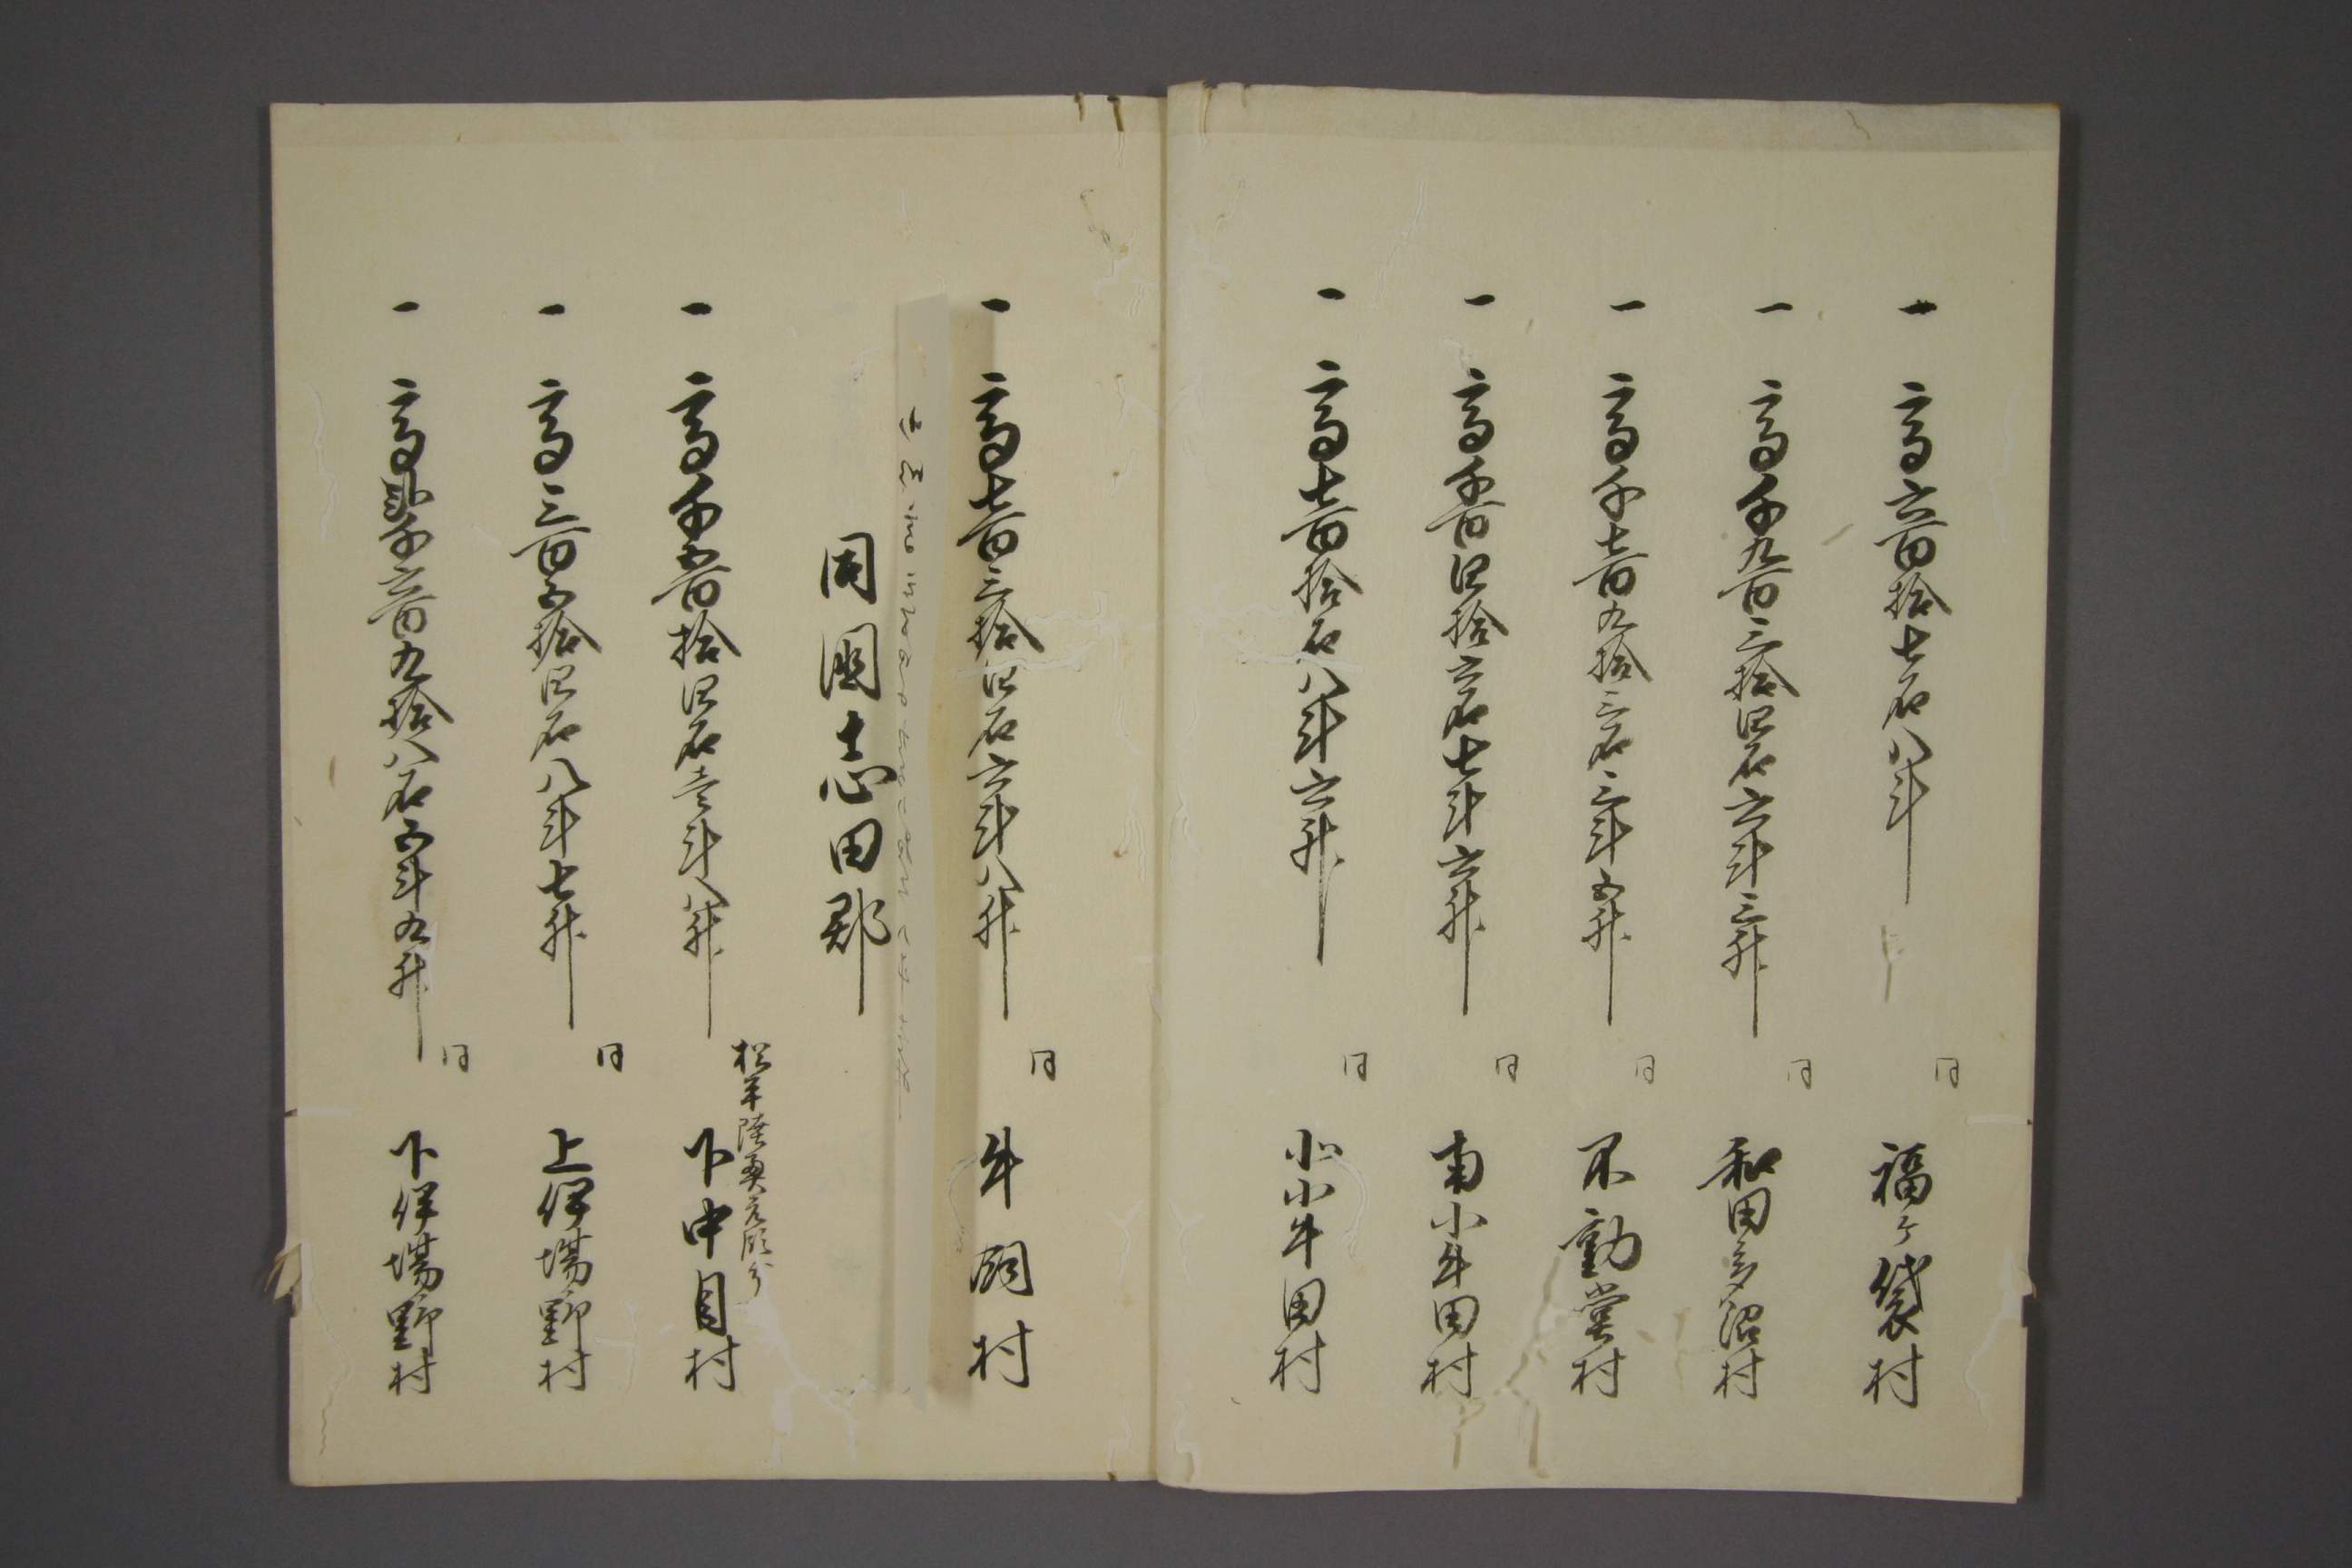 一 高六百拾七石八斗 同 福ヶ袋村
一 高千九百三拾四石六斗三升 同 和田多沼村
一 高千七百九拾三石三斗五升 同 不動堂村
一 高千百四拾六石七斗六升 同 南小牛田村
一 高七百拾石八斗六升 同 北小牛田村
一 高七百三拾四石六斗八升 同 牛飼村
同國志田郡
松平陸奥守領分
一 高千五百拾四石壱斗八升 下中目村
一 高三百五拾四石八斗七升 同 上伊場野村
一 高弐千六百九拾八石五斗九升 同 下伊場野村